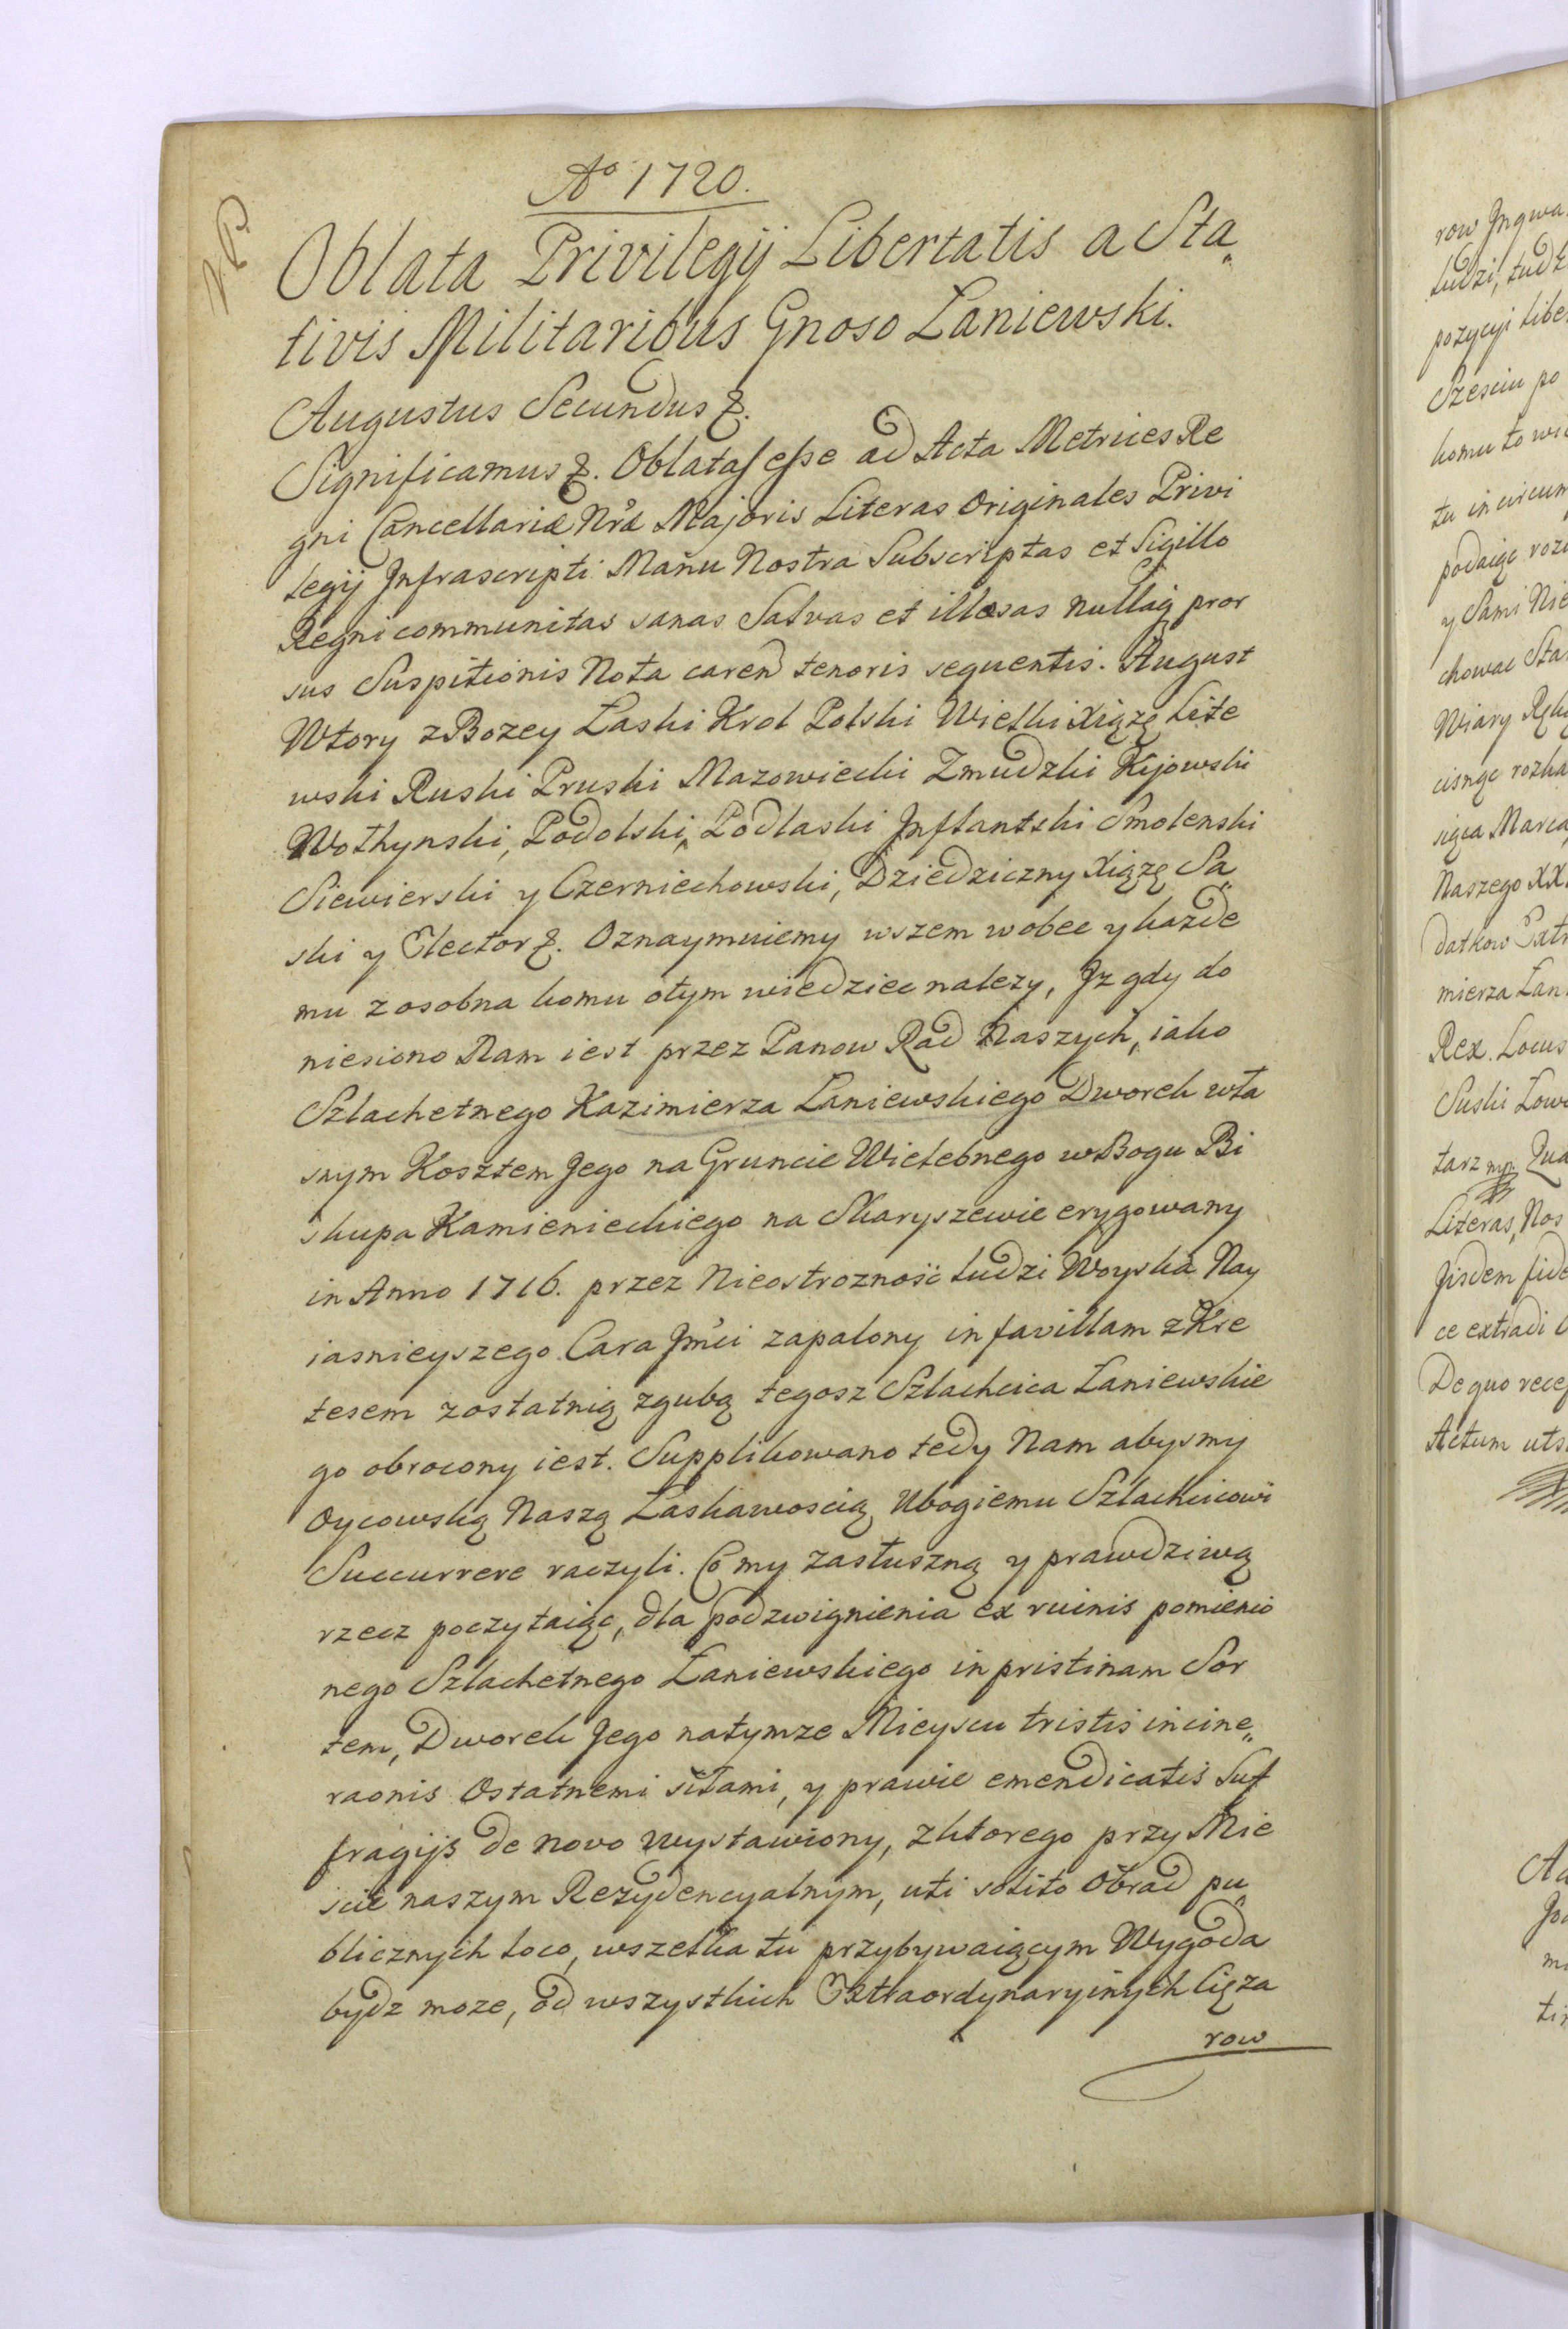 Ao 1720.
N. B.
Oblata Privilegij Libertatis a Sta„
tivis Militaribus Gnoso Łaniewski.
Augustus Secundus &.
Significamus &. Oblatas esse ad Acta Metrices Re
gni Cancellariæ Nræ Majoris Literas Originales Privi
legij Infrascripti Manu Nostra Subscriptas et Sigillo
Regni communitas sanas Salvas et illæsas nullaq pror
sus Suspitionis Nota caren tenoris sequentis. August
Wtory z Bozey Łaski Krol Polski Wielki Xiązę Lite
wski Ruski Pruski Mazowiecki Zmudzki Kijowski
Wołhynski, Podolski, Podlaski Inflantski Smolenski
Siewierski y Czerniechowski, Dziedziczny Xiązę Sa„
ski y Elector &. Oznaymuiemy wszem wobec y kazde
mu z osobna komu otym wiedziec nalezy, Iz gdy do
niesiono Nam iest przez Panow Rad Naszych, iako
Szlachetnego Kazimierza Łaniewskiego Dworek wła
snym Kosztem Jego na Gruncie Wielebnego w Bogu Bi
skupa Kamienieckiego na Skaryszewie erygowany
in Anno 1716. przez Nieostrozność ludzi Woyska Nay
iasnieyszego Cara Jmci zapalony in favillam z Kre
tesem zostatnią zgubą tegosz Szlachcica Łaniewskie
go obrocony iest. Supplikowano tedy Nam abysmy
Oycowską Naszą Łaskawoscią Ubogiemu Szlachcicowi
Succurrere raczyli. Co my zasłuszną y prawdziwą
rzecz poczytaiąc, dla podzwignienia ex ruinis pomienio
nego Szlachetnego Łaniewskiego in pristinam Sor
tem, Dworek Jego natymze Mieyscu tristis incine„
raonis Ostatnemi siłami, y prawie emendicatis Suf
fragijs de novo wystawiony, zktorego przy Mie
scie naszym Rezydencyalnym, uti solito Obrad pu„
blicznych loco, wszelka tu przybywaiącym Wygoda
bydz moze, od wszystkich Extraordynaryinych Cięza
row